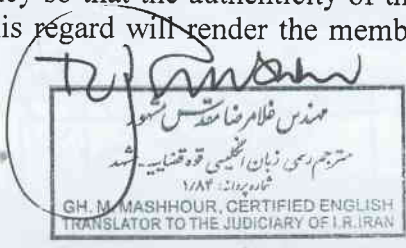 ey so that the authenticity of th
is regard will render the memb
مهندس غلامرضا مقدس مشهور
مترجم رسمی زبان انگلیسی قوه قضاییه - مشهد
شماره پروانه: ۱/۸۴
GH. M. MASHHOUR, CERTIFIED ENGLISH
TRANSLATOR TO THE JUDICIARY OF I.R.IRAN